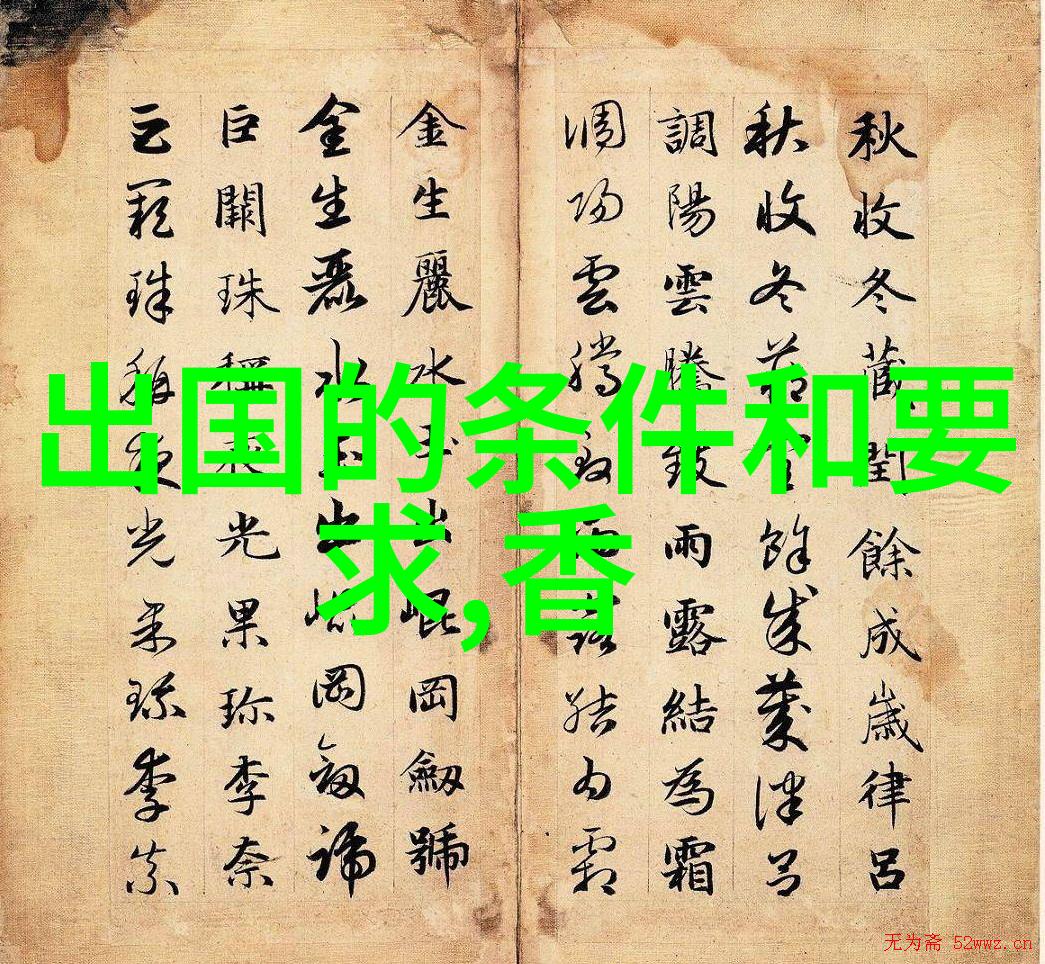 出国的条件和要
求,香
秋收冬藏閏餘成歲律呂
秋收冬藏閏餘成歲律呂
調陽雲騰致雨露結為霜
調陽雲騰致雨露結為霜
金生麗水玉出崐岡劔號
金生麗水玉出崐岡劔號
巨闕珠稱夜光果珎李柰
巨闕珠稱夜光果珎李柰
无为斋 52wwz.cn